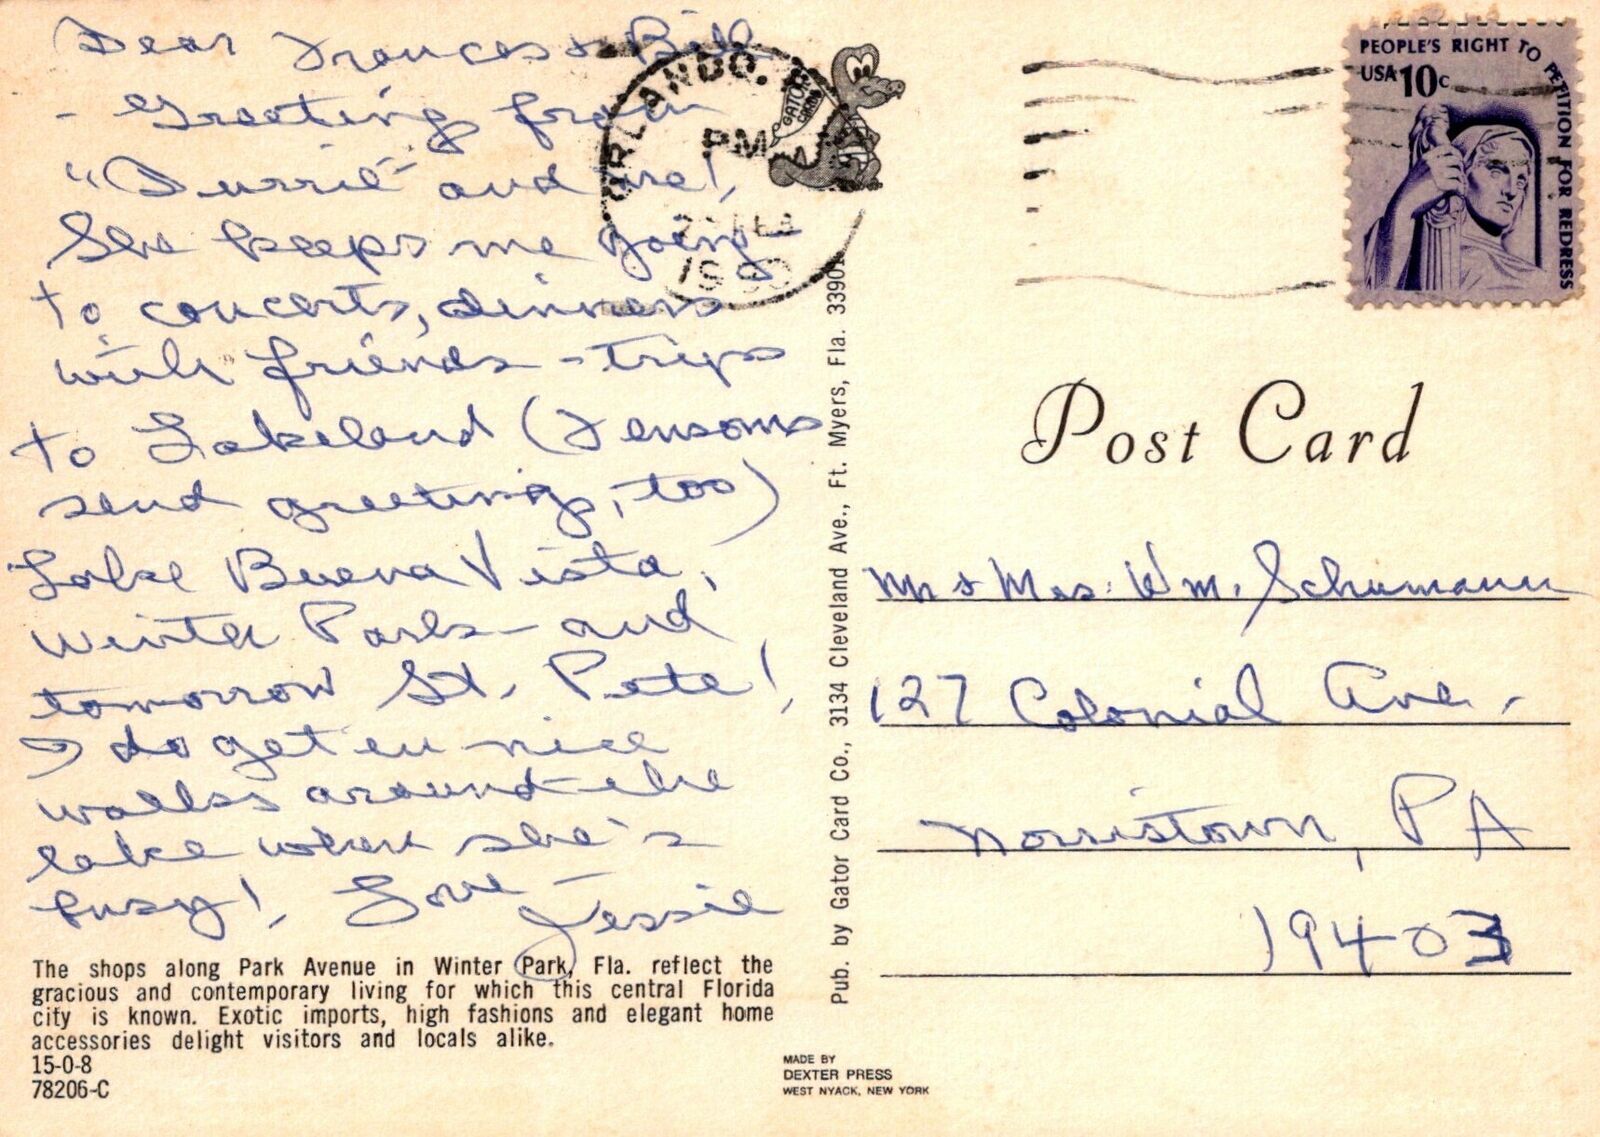 Dear Frances & Bill
- Greeting from
"Durrie" and me!
She keeps me going
to concerts, dinners
with friends - trips
to Lakeland (Jensons
send greeting, too)
Lake Buena Vista,
Winter Park - and
tomorrow St. Pete!
I do get in nice
walks around the
lake when she's
busy! Love -
Jessie
The shops along Park Avenue in Winter Park, Fla. reflect the
gracious and contemporary living for which this central Florida
city is known. Exotic imports, high fashions and elegant home
accessories delight visitors and locals alike.
15-0-8
78206-C
ORLANDO,
PM
1980
GATOR
CARDS
Pub. by Gator Card Co., 3134 Cleveland Ave., Ft. Myers, Fla. 33901
MADE BY
DEXTER PRESS
WEST NYACK, NEW YORK
PEOPLE'S RIGHT TO PETITION FOR REDRESS
USA 10c
Post Card
Mr & Mrs. Wm. Schumann
127 Colonial Ave.
Norristown, PA
19403